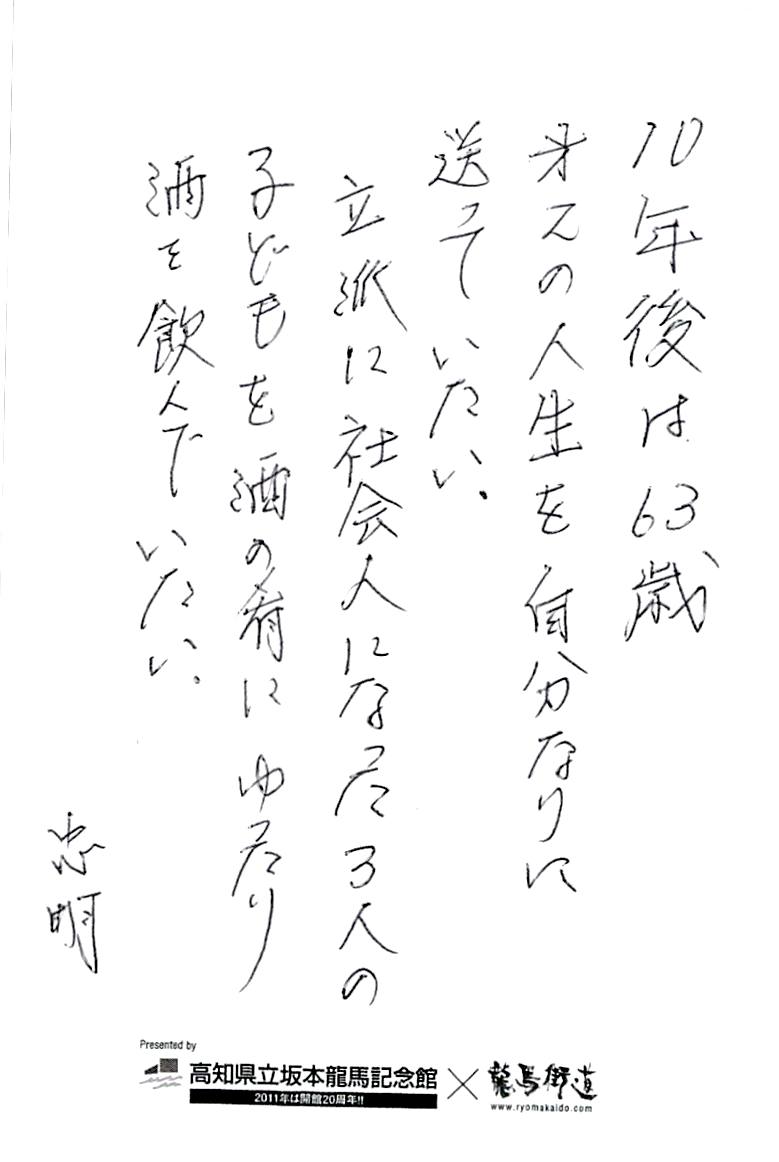 10年後は63歳
才2の人生を自分なりに
送っていたい。
立派に社会人になった3人の
子どもを酒の肴にゆったり
酒を飲んでいたい。
忠明
Presented by
高知県立坂本龍馬記念館
2011年は開館20周年!!
×
龍馬街道
www.ryomakaido.com